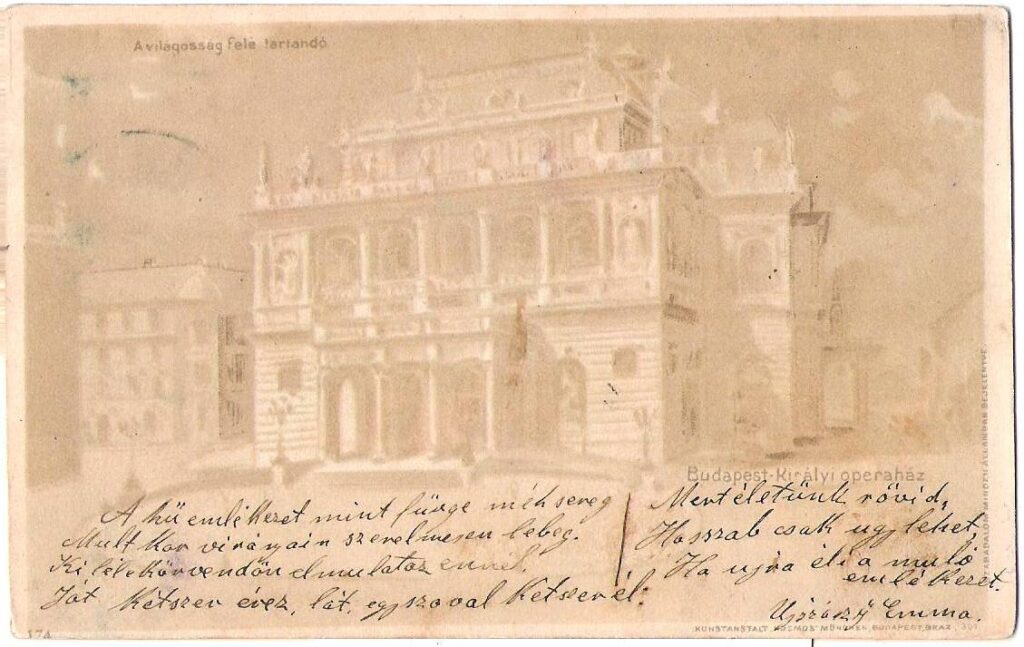 A világosság felé tartandó
Budapest-Királyi operaház
A hű emlékezet mint fürge méh sereg
Mult kor virányain szerelmesen lebeg.
Ki lélek örvendőn elmulatoz ennél.
Ját kétszer érez, lát, egyszoval kétszer él:
Mert életünk rövid,
Hosszab csak ugy lehet,
Ha ujra éli a muló
emlékezet.
Emma.
SZABADALOM MINDEN ÁLLAMBAN BEJELENTVE
174
KUNSTANSTALT KOSMOS MÜNCHEN, BUDAPEST, GRAZ. 301